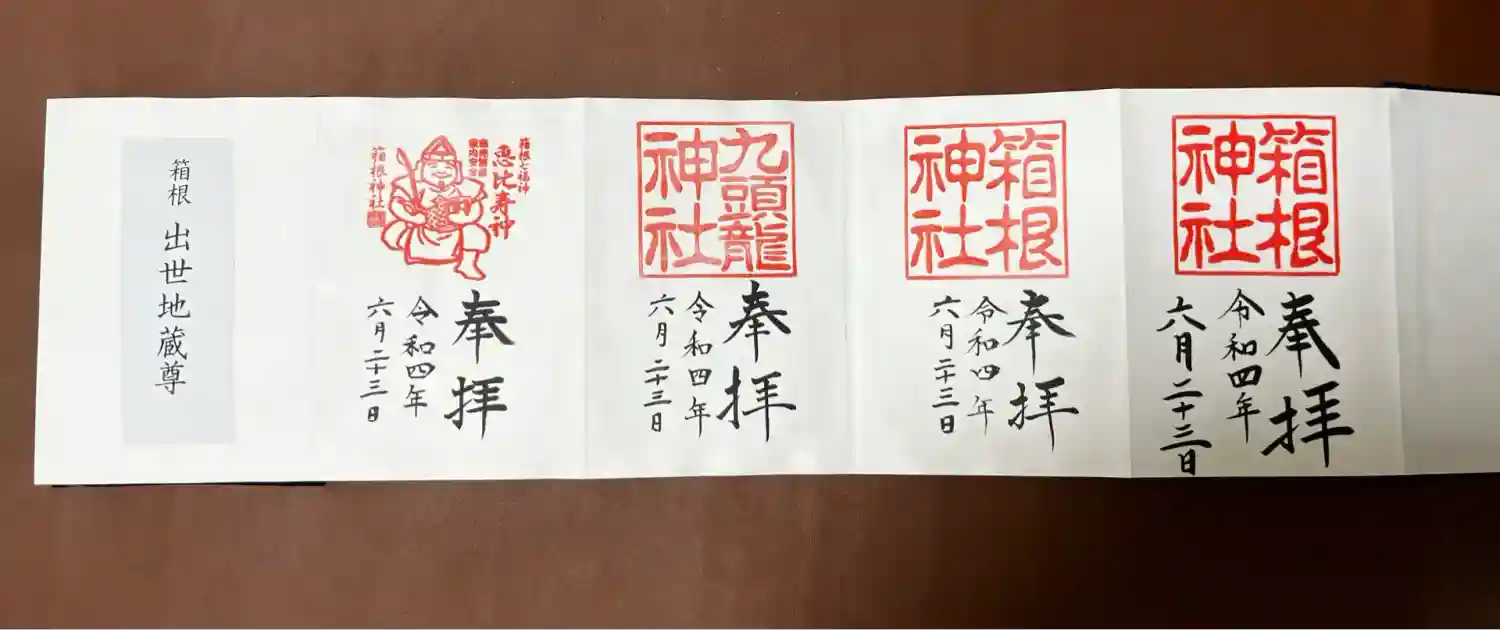 箱根
神社
奉拝
令和四年
六月二十三日
箱根
神社
奉拝
令和四年
六月二十三日
九頭龍
神社
奉拝
令和四年
六月二十三日
箱根七福神
恵比寿神
箱根神社
奉拝
令和四年
六月二十三日
箱根 出世地蔵尊